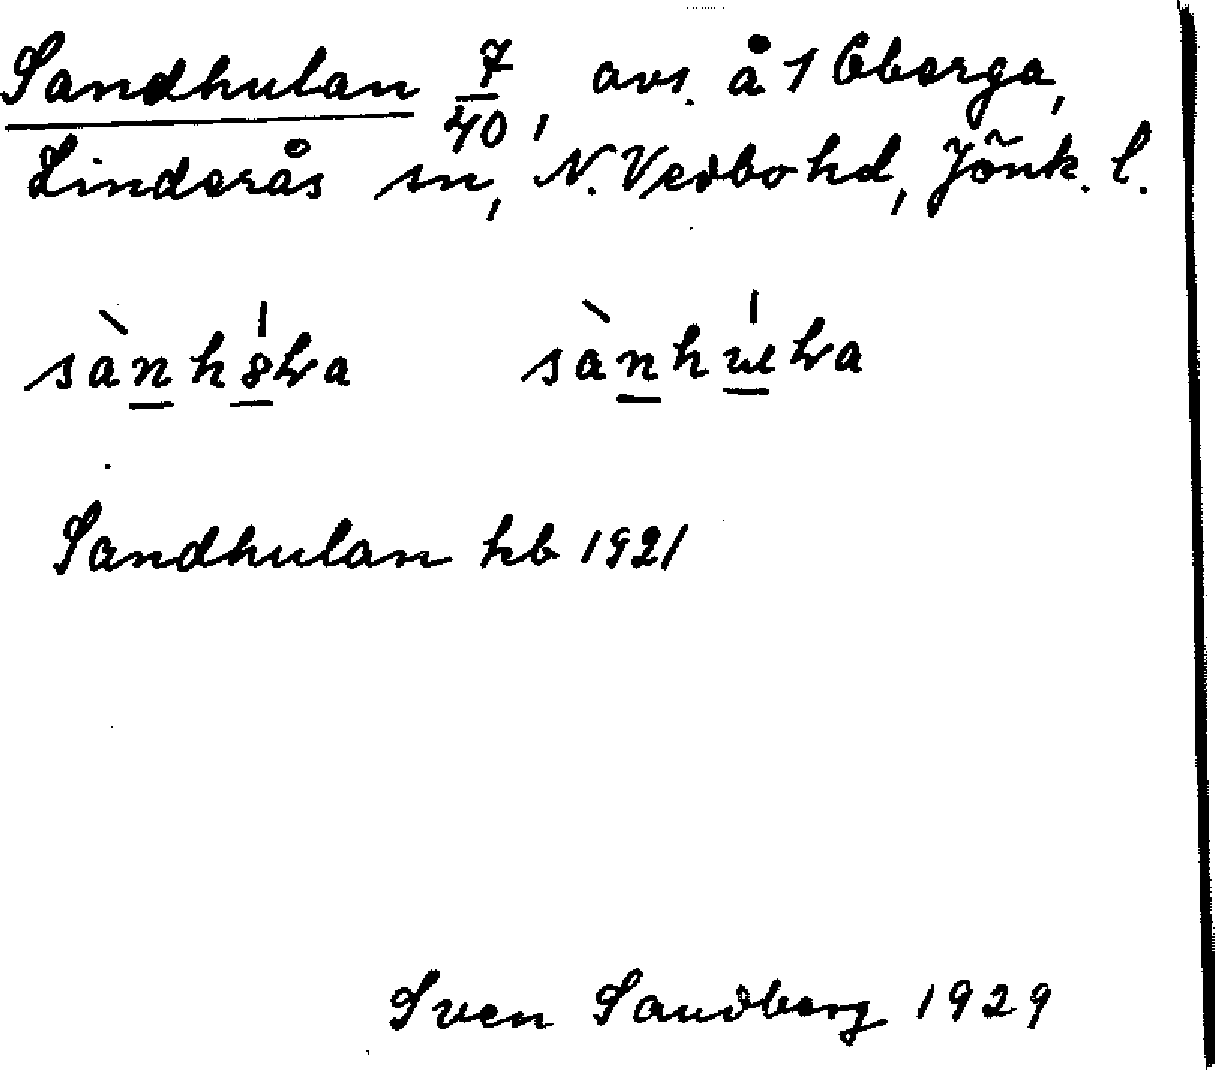 Sandhulan 7/40, avs. å 1 Oberga,
Linderås sn, N. Vedbo hd, Jönk. l.
Sandhulan hb 1921
Sven Sandberg 1929